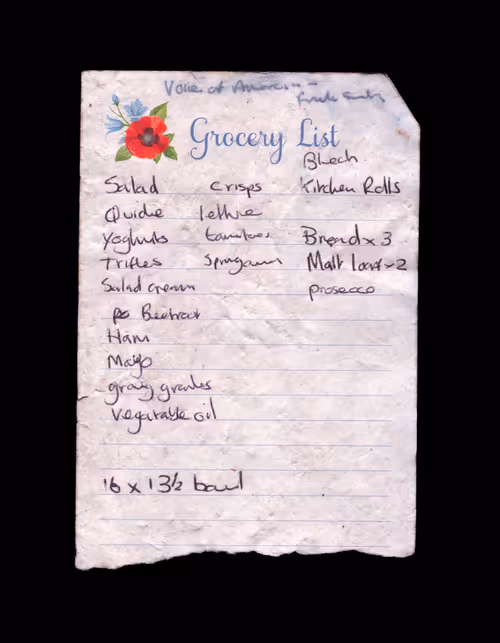 Voice of America
Grocery List
Bleach
Salad crisps Kitchen Rolls
Quiche lettuce
Yoghurts tomatoes Bread x 3
Trifles Malt loaf x 2
Salad cream prosecco
Beetroot
Ham
Mayo
gravy granules
Vegetable oil
16 x 13½